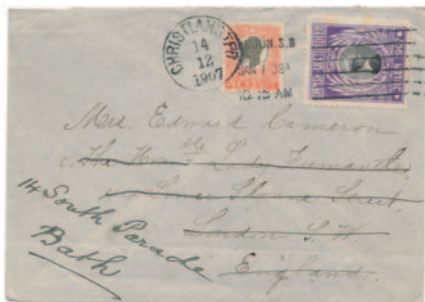 CHRISTIANSTED
14
12
1907
LONDON. S.W
JAN 1 08
10.15 AM
Mrs. Edward Cameron
c/o The Honble Lady Fremantle
Sloane Street
London S.W.
England
14 South Parade
Bath